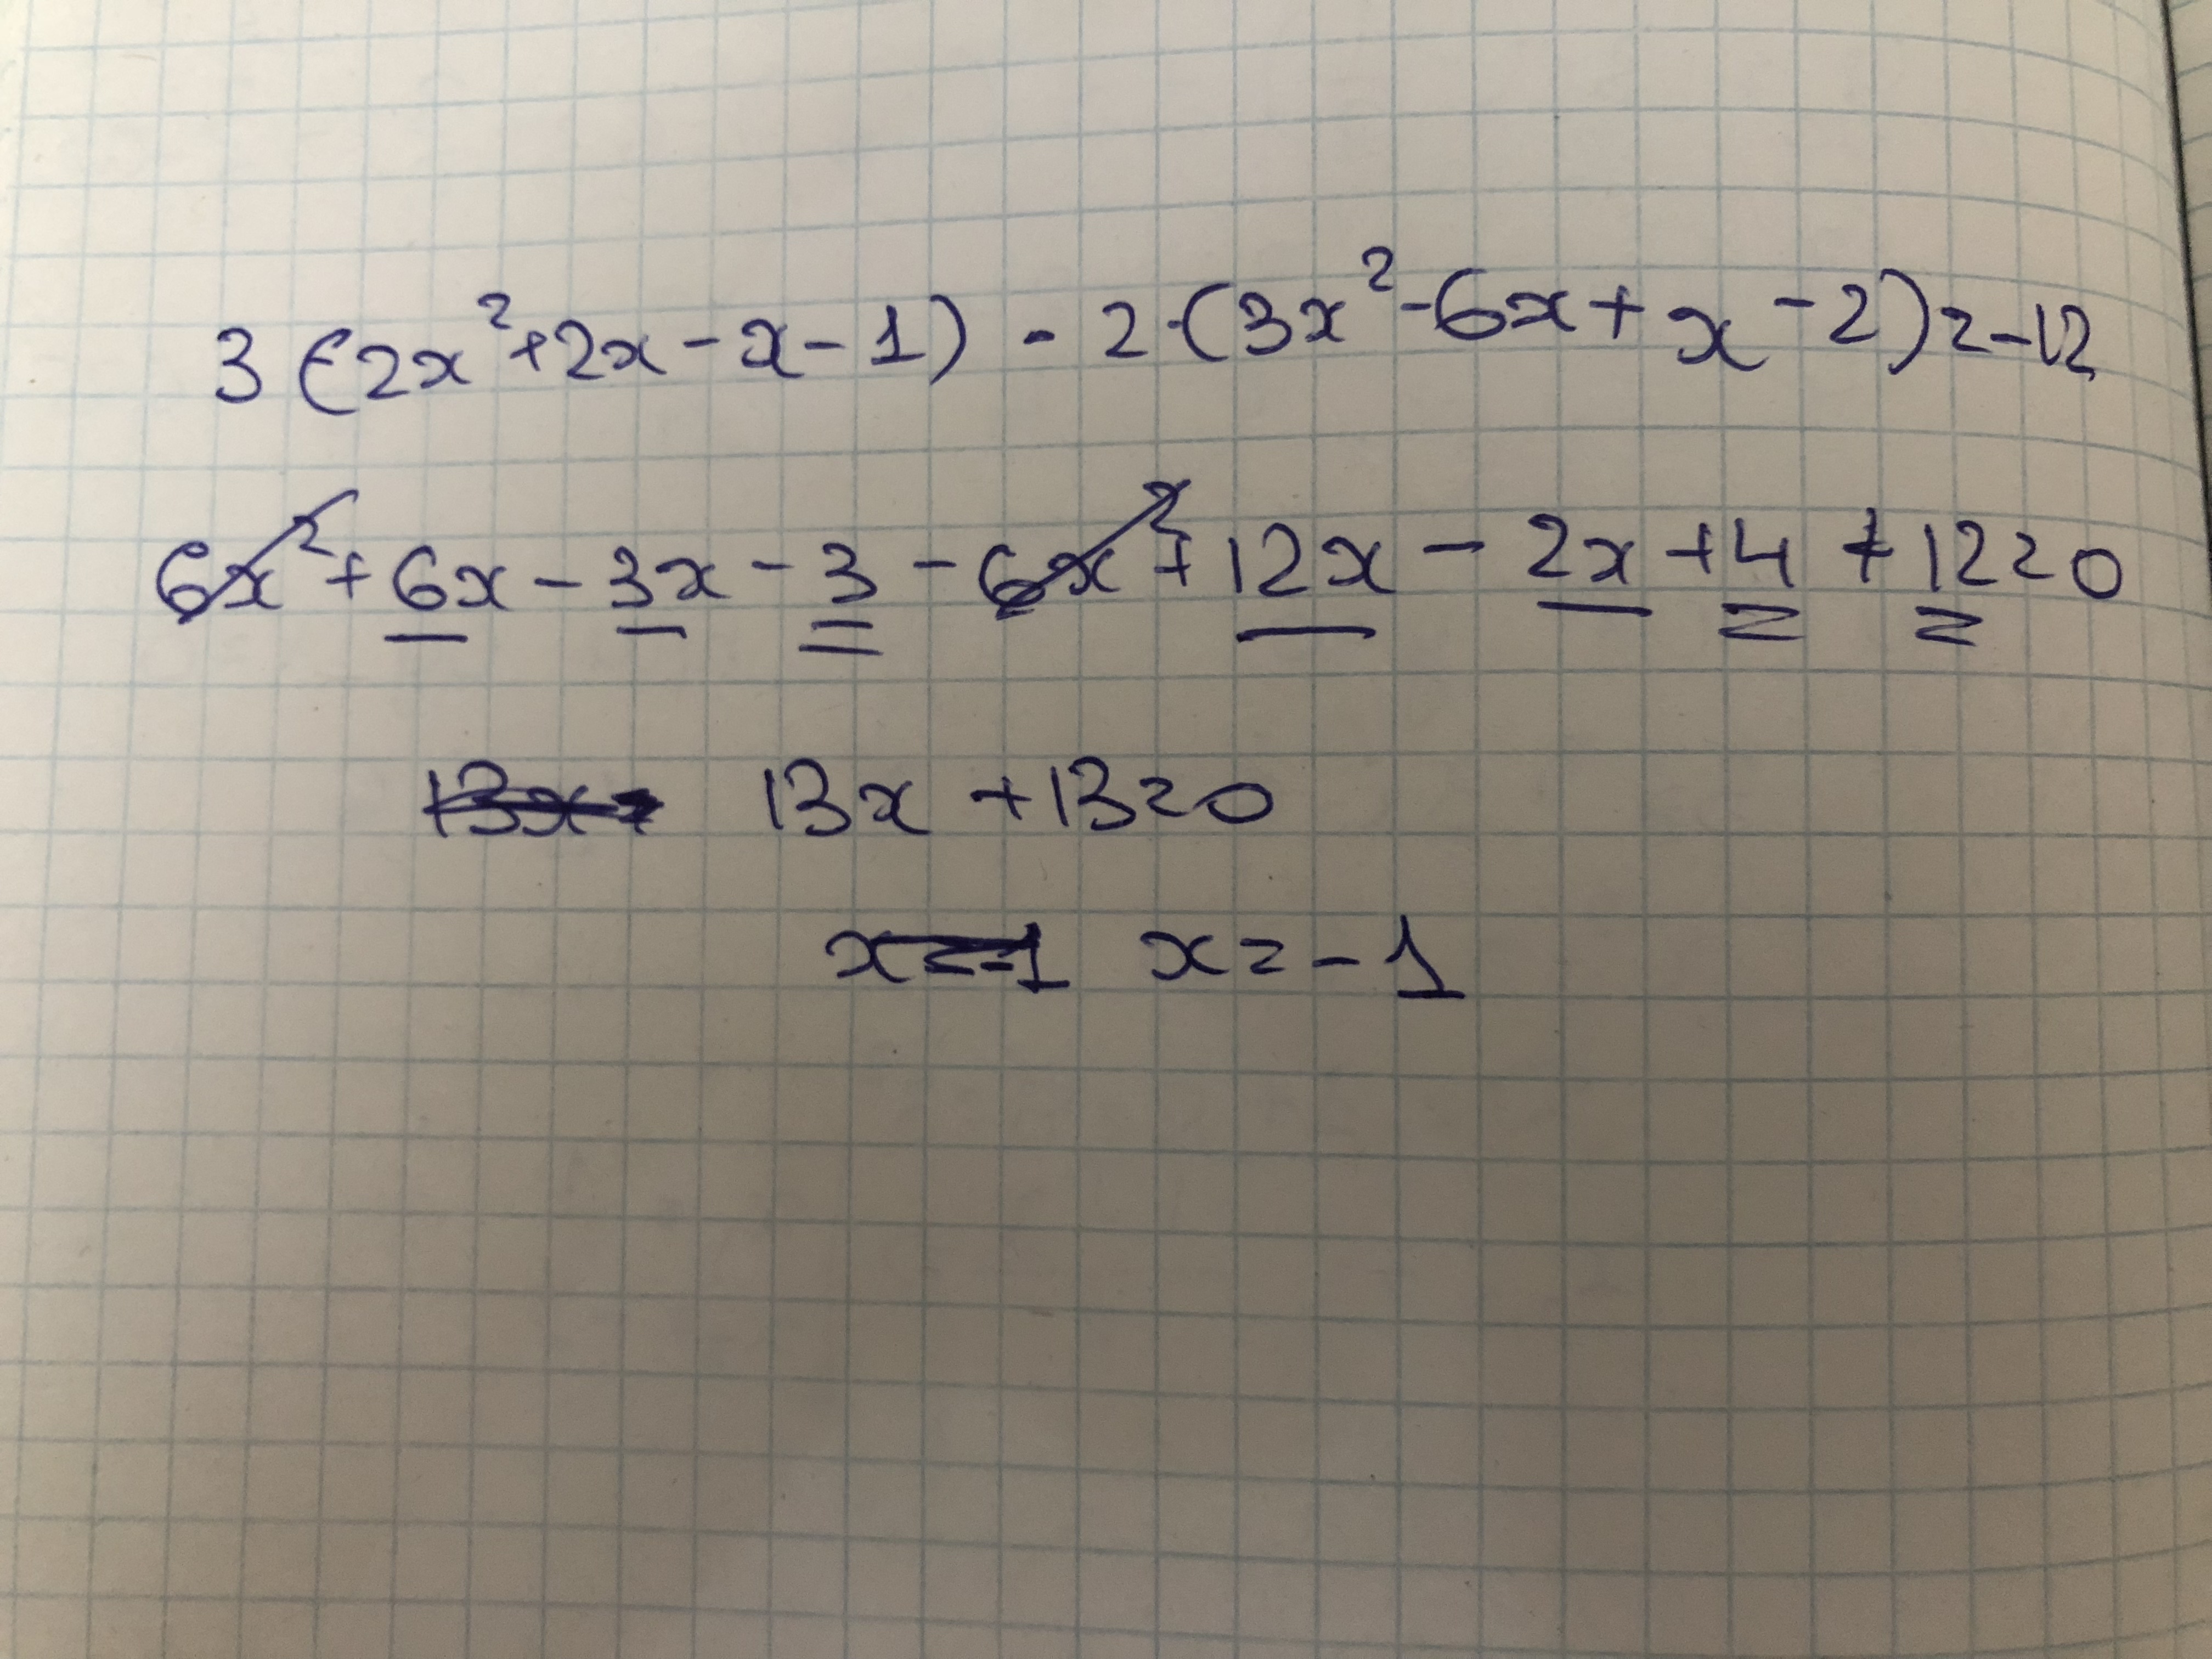 3(2x²+2x-x-1) - 2·(3x²-6x+x-2)=-12
6x²+6x-3x-3-6x²+12x-2x+4+12=0
13x 13x+13=0
x=-1 x=-1